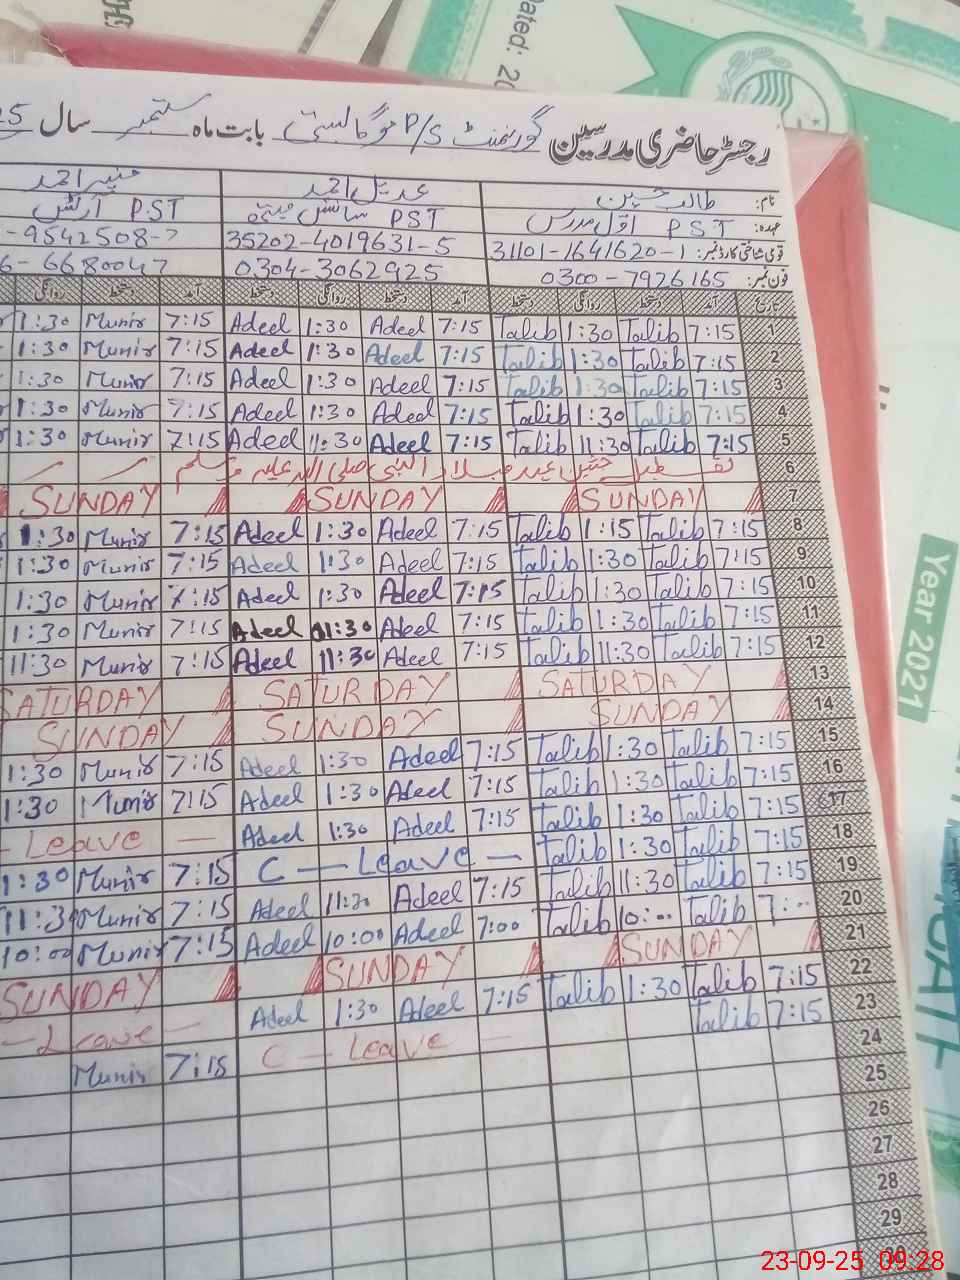 Dated: 20
رجسٹر حاضری مدرسین گورنمنٹ P/S موگا بستی بابت ماہ ستمبر سال 25
نام: طالب حسین عدیل احمد منیر احمد
عہدہ: PST اول مدرس PST سائنس PST آرٹس
قومی شناختی کارڈ نمبر: 31101-1641620-1 35202-4019631-5 -9542508-7
فون نمبر: 0300-7926165 0304-3062925 6-6680047
تاریخ آمد دستخط روانگی دستخط آمد دستخط روانگی دستخط آمد دستخط روانگی
1 7:15 Talib 1:30 Talib 7:15 Adeel 1:30 Adeel 7:15 Munir 1:30
2 7:15 Talib 1:30 Talib 7:15 Adeel 1:30 Adeel 7:15 Munir 1:30
3 7:15 Talib 1:30 Talib 7:15 Adeel 1:30 Adeel 7:15 Munir 1:30
4 7:15 Talib 1:30 Talib 7:15 Adeel 1:30 Adeel 7:15 Munir 1:30
5 7:15 Talib 11:30 Talib 7:15 Adeel 11:30 Adeel 7:15 Munir 1:30
6 تعطیل جشن عید میلاد النبی صلی اللہ علیہ وسلم
7 SUNDAY SUNDAY SUNDAY
8 7:15 Talib 1:15 Talib 7:15 Adeel 1:30 Adeel 7:15 Munir 1:30
9 7:15 Talib 1:30 Talib 7:15 Adeel 1:30 Adeel 7:15 Munir 1:30
10 7:15 Talib 1:30 Talib 7:15 Adeel 1:30 Adeel 7:15 Munir 1:30
11 7:15 Talib 1:30 Talib 7:15 Adeel 01:30 Adeel 7:15 Munir 1:30
12 7:15 Talib 11:30 Talib 7:15 Adeel 11:30 Adeel 7:15 Munir 11:30
13 SATURDAY SATURDAY SATURDAY
14 SUNDAY SUNDAY SUNDAY
15 7:15 Talib 1:30 Talib 7:15 Adeel 1:30 Adeel 7:15 Munir 1:30
16 7:15 Talib 1:30 Talib 7:15 Adeel 1:30 Adeel 7:15 Munir 1:30
17 7:15 Talib 1:30 Talib 7:15 Adeel 1:30 Adeel - Leave -
18 7:15 Talib 1:30 Talib C - Leave - 7:15 Munir 1:30
19 7:15 Talib 11:30 Talib 7:15 Adeel 11:30 Adeel 7:15 Munir 11:30
20 7:00 Talib 10:00 Talib 7:00 Adeel 10:00 Adeel 7:15 Munir 10:00
21 SUNDAY SUNDAY SUNDAY
22 7:15 Talib 1:30 Talib 7:15 Adeel 1:30 Adeel - Leave -
23 7:15 Talib C - Leave - 7:15 Munir
24
25
26
27
28
29
Year 2021
23-09-25 09:28